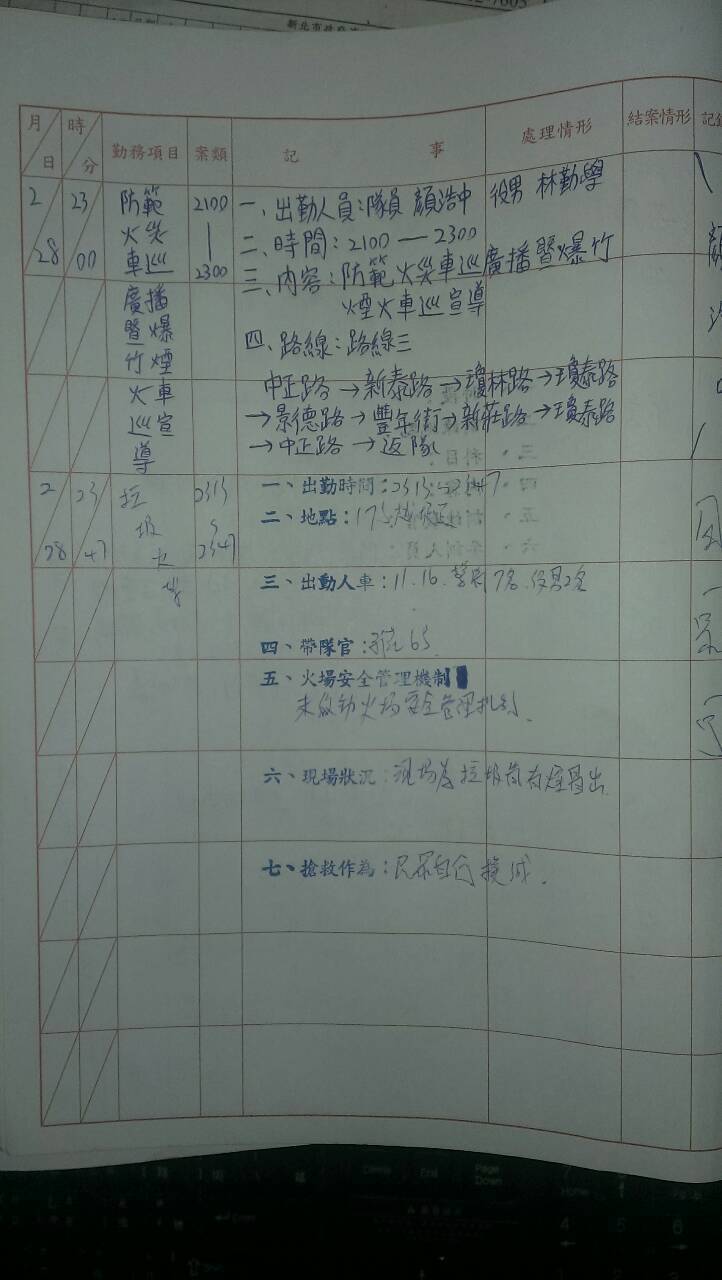 新北市政府
月 日 時 分 勤務項目 案類 記 事 處理情形 結案情形
2 28 23 00
防範
火災
車巡
廣播
暨爆
竹煙
火車
巡宣
導
2100
|
2300
一、出勤人員:隊員 顏浩中 役男 林勤學
二、時間:2100 — 2300
三、內容:防範火災車巡廣播暨爆竹
煙火車巡宣導
四、路線:路線三
中正路→新泰路→瓊林路→瓊泰路
→景德路→豐年街→新莊路→瓊泰路
→中正路→返隊
2 28 23 47
垃
圾
火
警
2313
2347
一、出勤時間:2313
二、地點:
三、出動人車:11.16.警消7名.役男2名
四、帶隊官:
五、火場安全管理機制
未啟動火場安全管理機制.
六、現場狀況:現場為垃圾 有煙冒出
七、搶救作為:民眾自行撲滅.
Delete End Page Down
Home
4 5 6
Enter
Shift